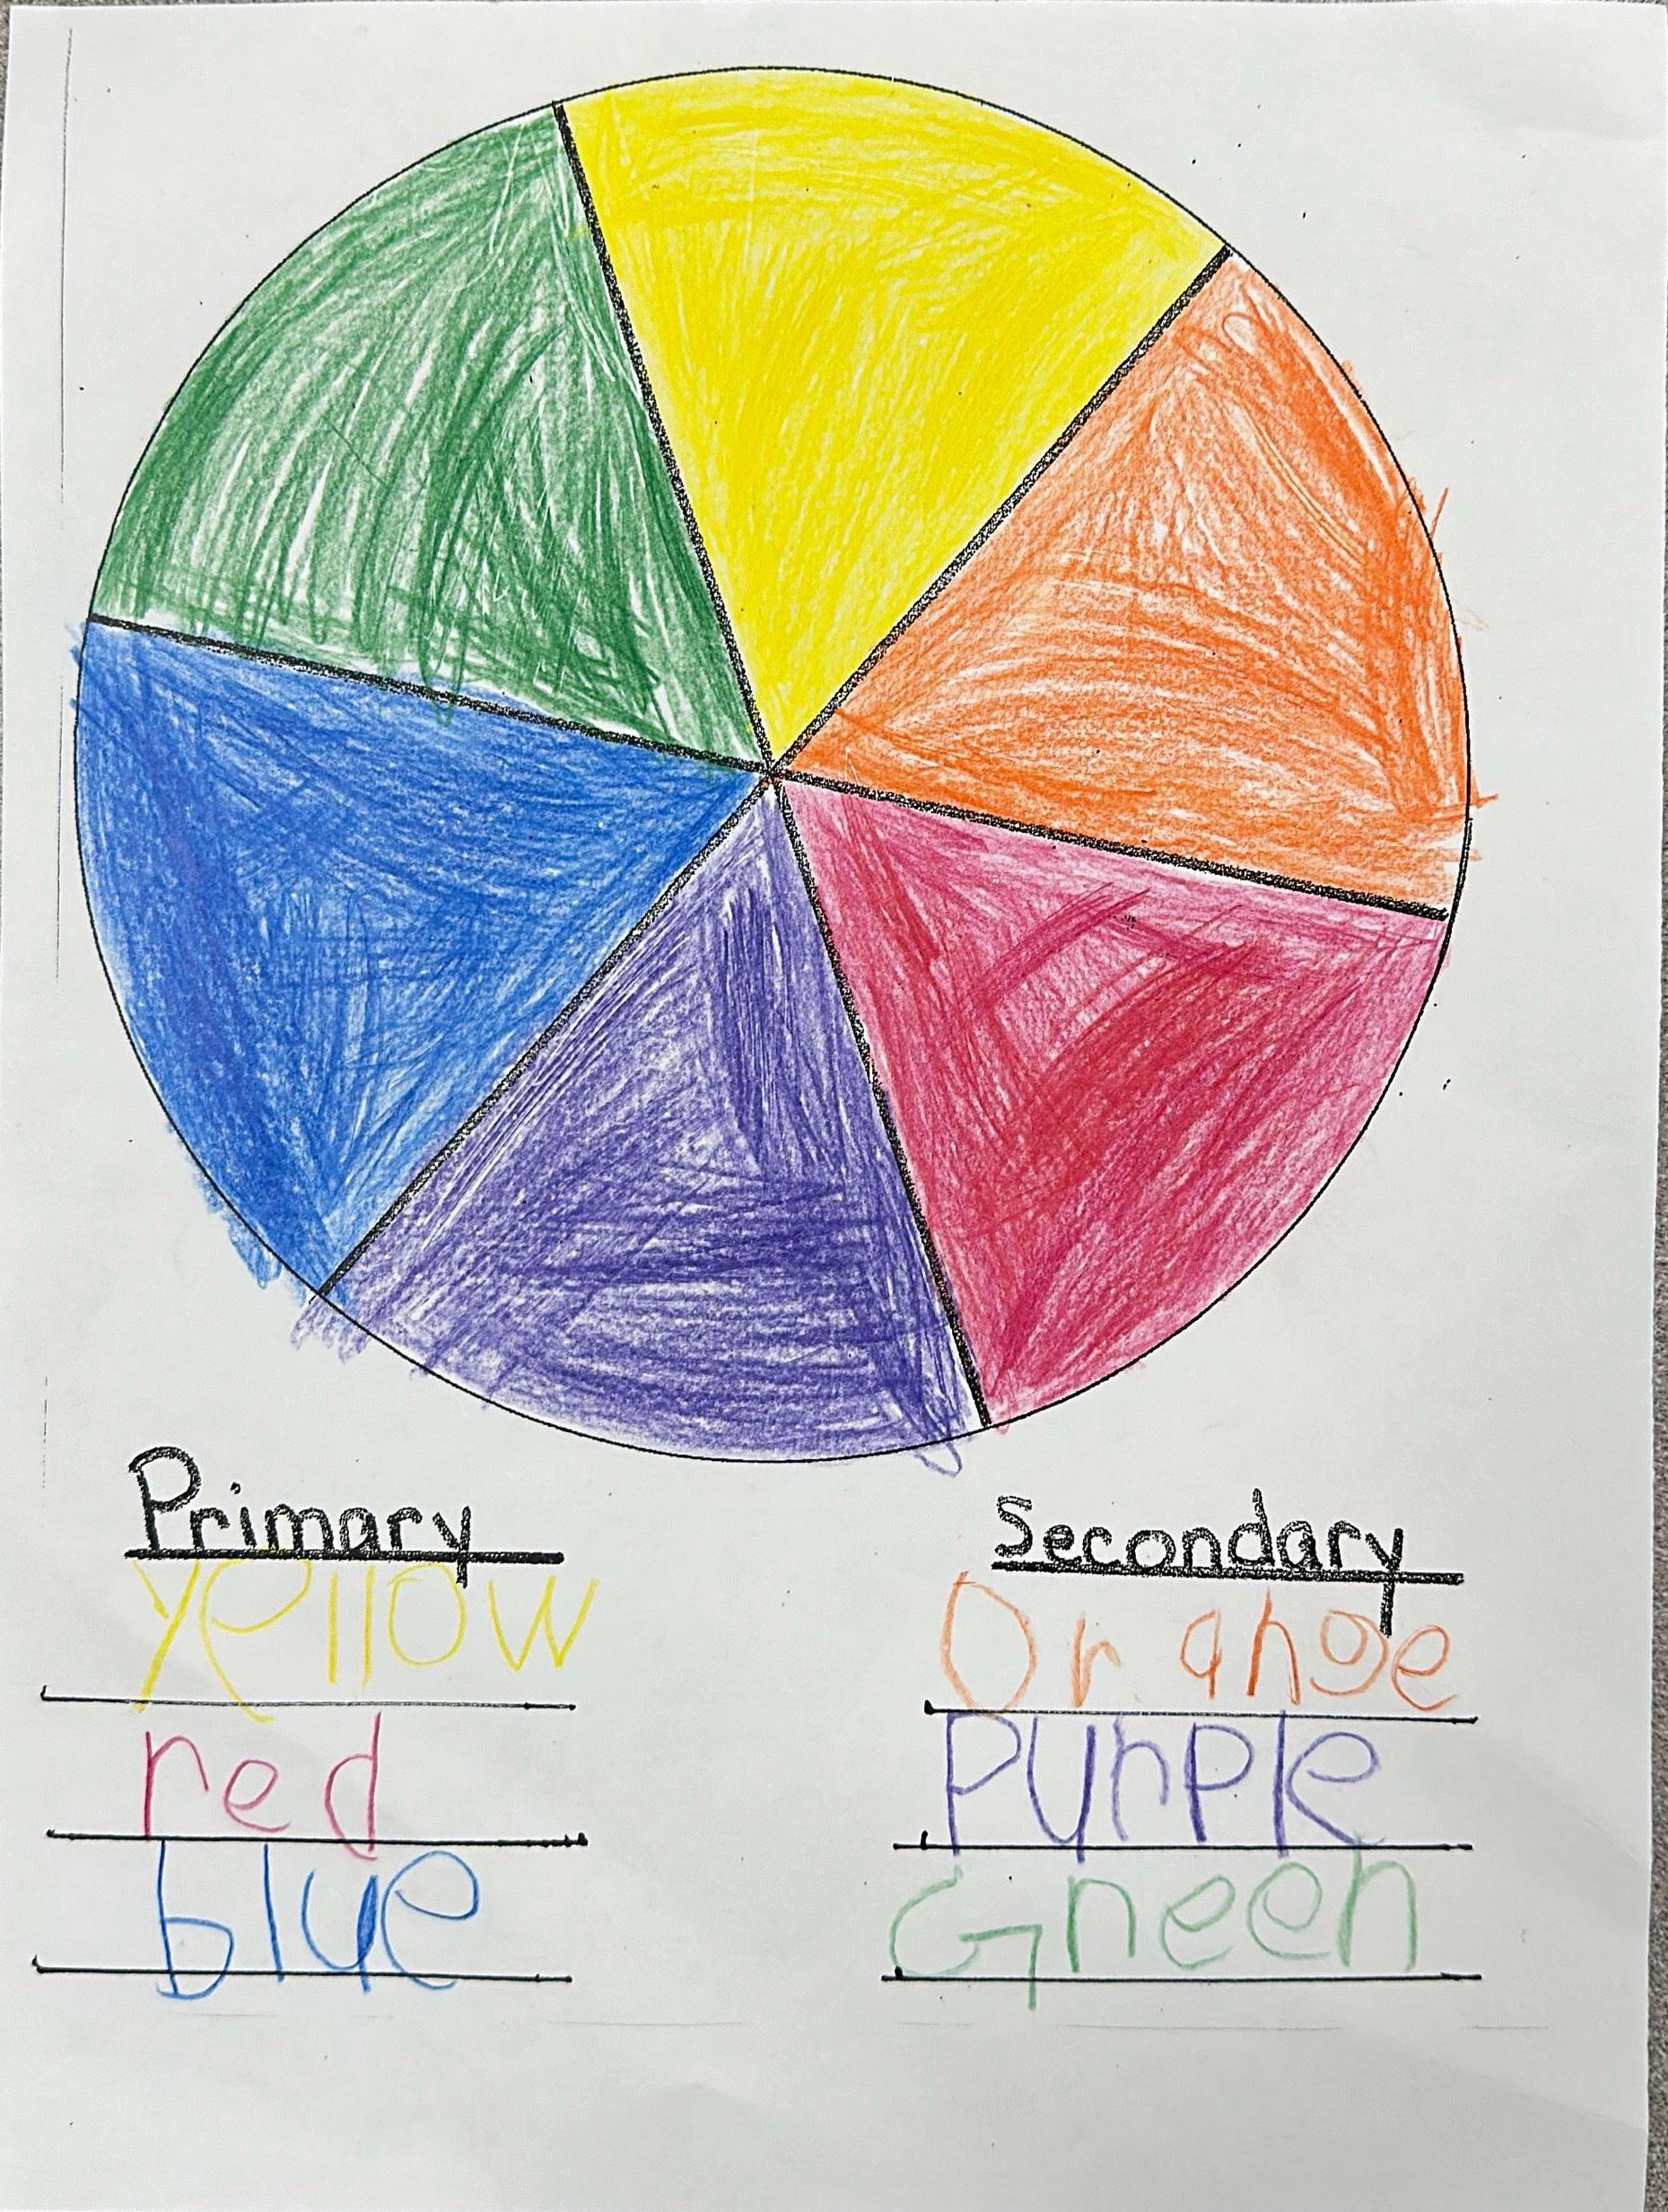 Primary
Yellow
red
blue
Secondary
Orange
Purple
Green